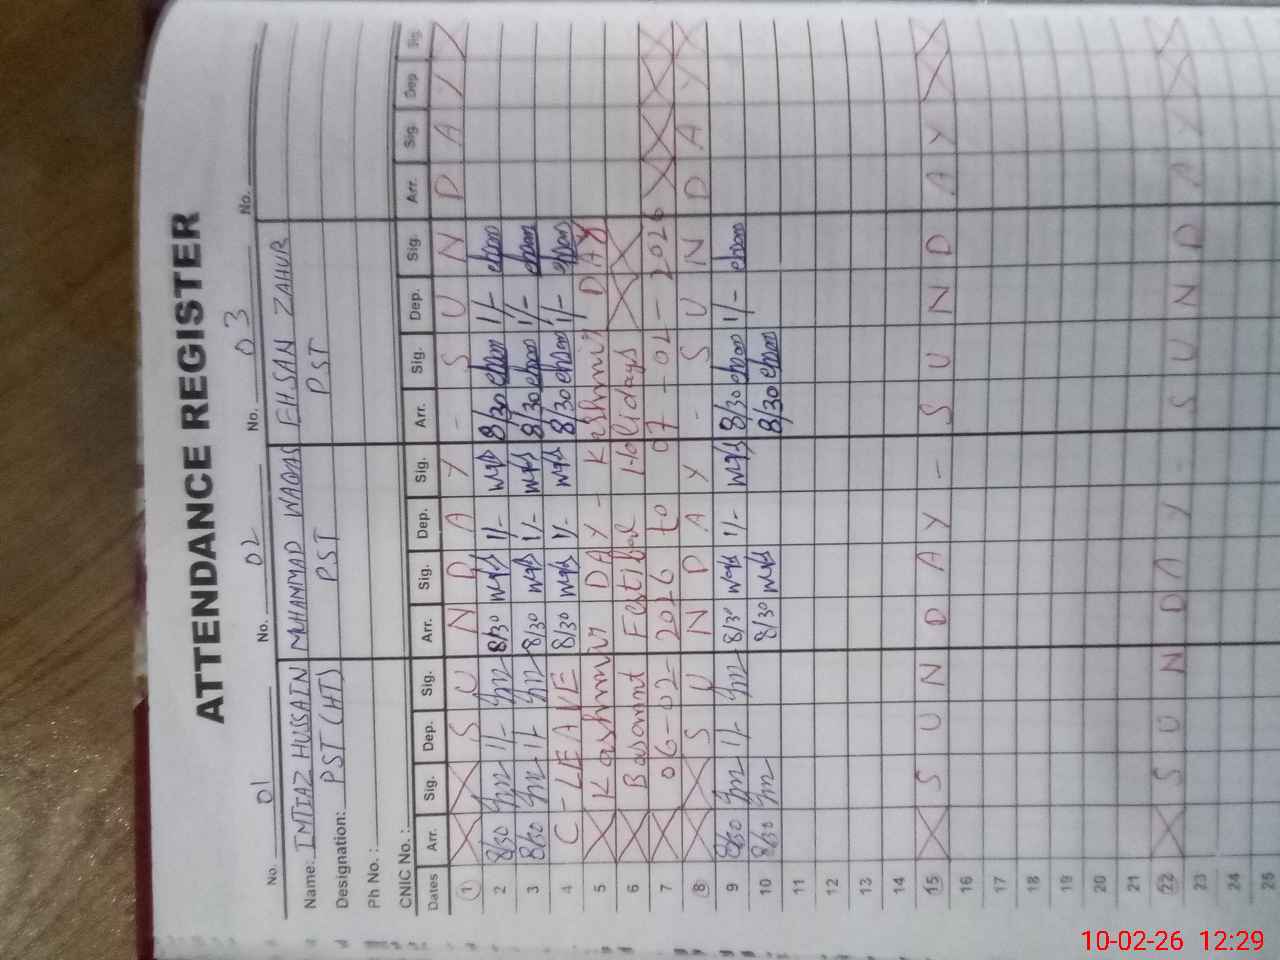 ATTENDANCE REGISTER
No. 01 No. 02 No. 03 No.
Name: IMTIAZ HUSSAIN MUHAMMAD WAQAS EHSAN ZAHUR
Designation: PST (HT) PST PST
Ph No. :
CNIC No. :
Dates Arr. Sig. Dep. Sig. Arr. Sig. Dep. Sig. Arr. Sig. Dep. Sig. Arr. Sig. Dep Sig.
1 S U N D A Y - S U N D A Y
2 8/30 1/- 8/30 1/- 8/30 1/-
3 8/30 1/- 8/30 1/- 8/30 1/-
4 C - LEAVE 8/30 1/- 8/30 1/-
5 Kashmir DAY - Kashmir DAY
6 Basannt Festibal Holidays
7 06-02-2026 to 07-02-2026
8 S U N D A Y - S U N D A Y
9 8/30 1/- 8/30 1/- 8/30 1/-
10 8/30 8/30 8/30
11
12
13
14
15 S U N D A Y - S U N D A Y
16
17
18
19
20
21
22 S U N D A Y - S U N D A Y
23
24
25
10-02-26 12:29